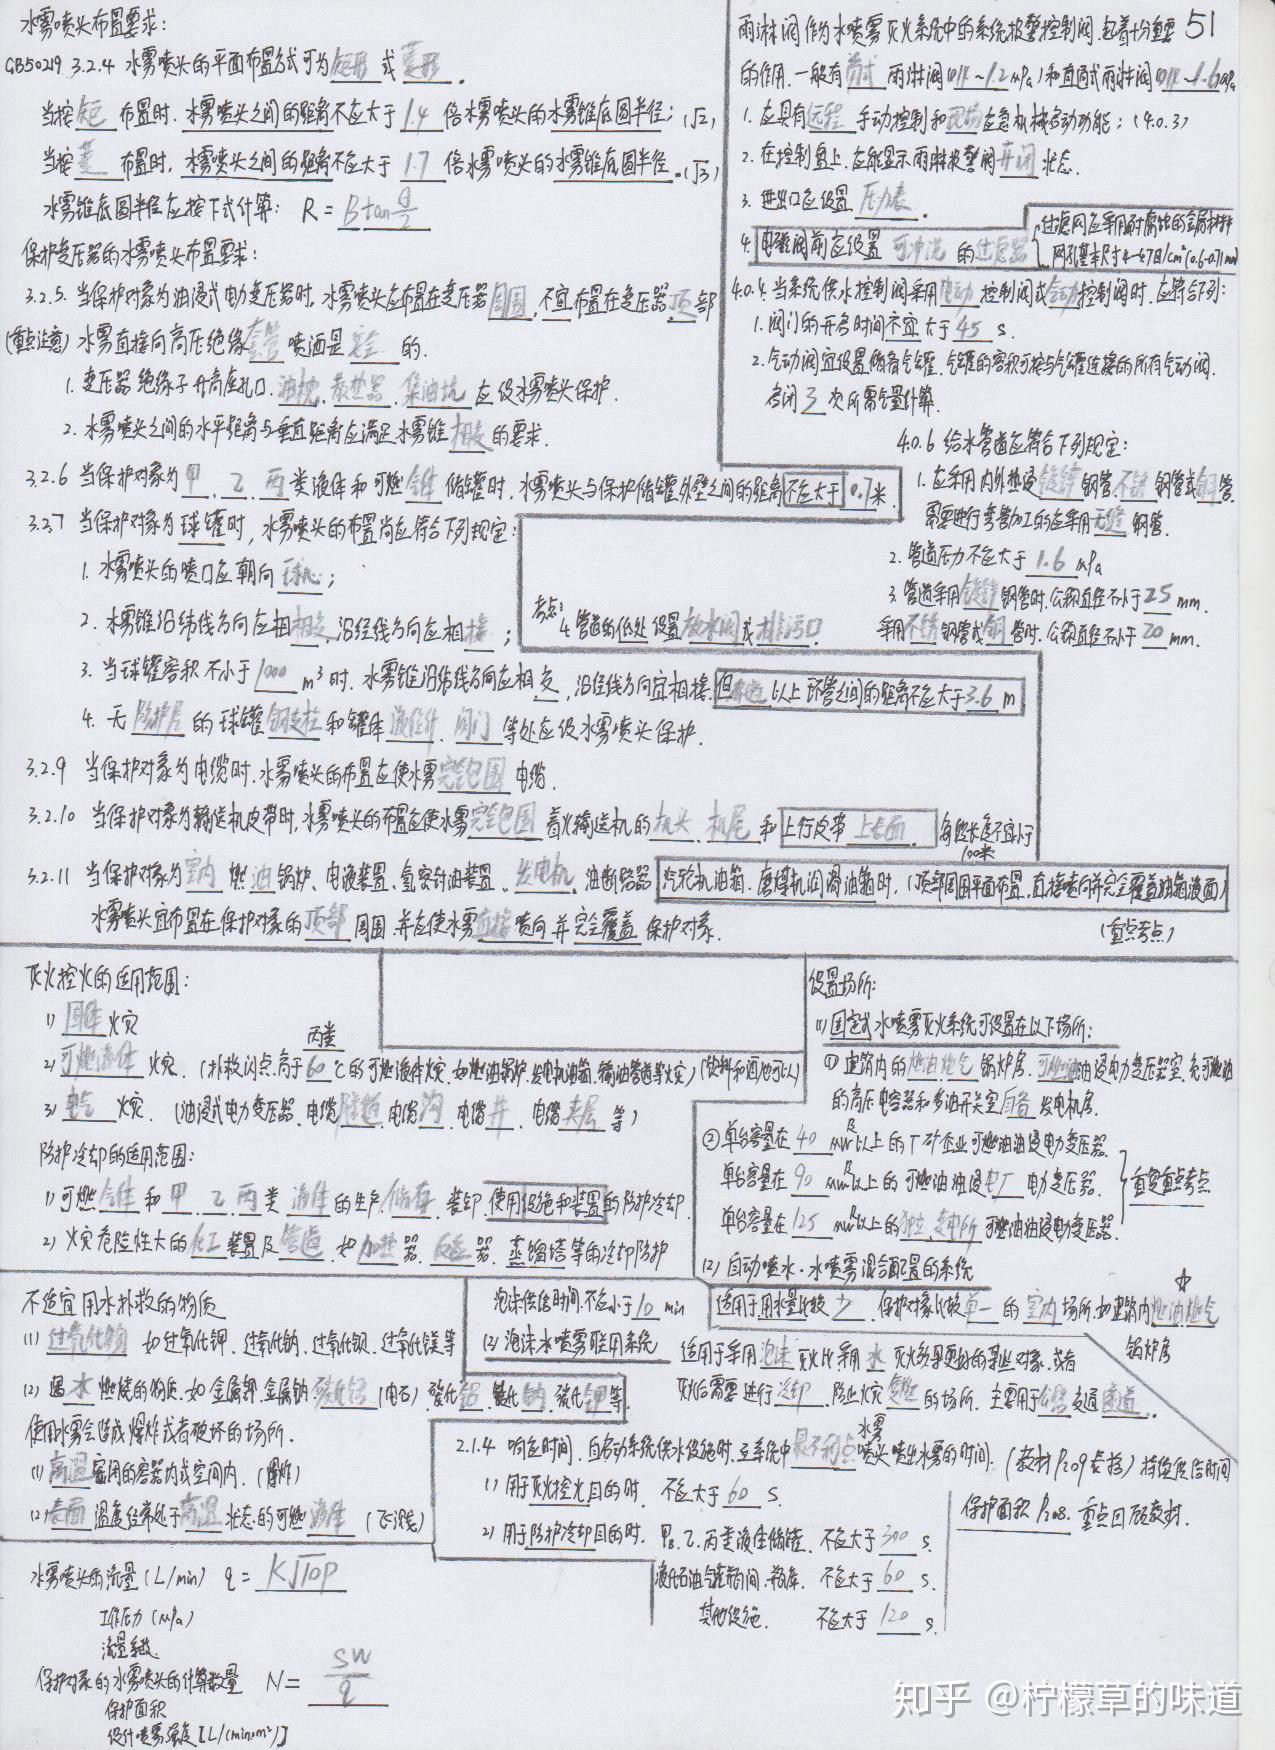 51
水雾喷头布置要求：
GB50219 3.2.4 水雾喷头的平面布置方式可为矩形或菱形。
当按矩布置时，水雾喷头之间的距离不应大于1.4倍水雾喷头的水雾锥底圆半径；(√2)
当按菱布置时，水雾喷头之间的距离不应大于1.7倍水雾喷头的水雾锥底圆半径。(√3)
水雾锥底圆半径应按下式计算： R=Btanθ/2
保护变压器的水雾喷头布置要求：
3.2.5 当保护对象为油浸式电力变压器时，水雾喷头应布置在变压器周围，不宜布置在变压器顶部
(重点注意) 水雾直接向高压绝缘套管喷洒是安全的.
1. 变压器绝缘子升高座孔口、油枕、散热器、集油坑应设水雾喷头保护.
2. 水雾喷头之间的水平距离与垂直距离应满足水雾锥相交的要求.
3.2.6 当保护对象为甲、乙、丙类液体和可燃气体储罐时，水雾喷头与保护储罐外壁之间的距离不应大于0.7米.
3.2.7 当保护对象为球罐时，水雾喷头的布置尚应符合下列规定：
1. 水雾喷头的喷口应朝向球心；
2. 水雾锥沿纬线方向应相相交，沿经线方向应相接；
3. 当球罐容积不小于1000m³时，水雾锥沿纬线方向应相交，沿经线方向宜相接，但赤道以上环管之间的距离不应大于3.6m
4. 无防护层的球罐钢支柱和罐体液位计、阀门等处应设水雾喷头保护.
3.2.9 当保护对象为电缆时，水雾喷头的布置应使水雾完全包围电缆.
3.2.10 当保护对象为输送机皮带时，水雾喷头的布置应使水雾完全包围着火输送机的机头、机尾和上行皮带上表面. 每段长度不宜小于100米
3.2.11 当保护对象为室内燃油锅炉、电液装置、氢密封油装置、发电机、油断路器、汽轮机油箱、磨煤机润滑油箱时，(顶部周围平面布置，直接喷向并完全覆盖油箱液面)
水雾喷头宜布置在保护对象的顶部周围，并应使水雾直接喷向并完全覆盖保护对象. (重点考点)
雨淋阀作为水喷雾灭火系统中的系统报警控制阀，起着十分重要
1. 应具有远程手动控制和现场应急机械启动功能；(4.0.3)
2. 在控制盘上，应能显示雨淋报警阀开闭状态.
3. 进出口应设置压力表。
4. 电磁阀前应设置可冲洗的过滤器
过滤网应采用耐腐蚀的金属材料
网孔基本尺寸4-4.7目/cm²(0.6-0.71mm)
4.0.4 当系统供水控制阀采用电动控制阀或气动控制阀时，应符合下列：
1. 阀门的开启时间不宜大于45s.
2. 气动阀宜设置储备气罐，气罐的容积可按与气罐连接的所有气动阀.
启闭3次所需气量计算.
4.0.6 给水管道应符合下列规定：
1. 应采用内外热浸镀锌钢管、不锈钢管或铜管.
需要进行弯管加工的应采用无缝钢管.
2. 管道压力不应大于1.6MPa
3. 管道采用镀锌钢管时，公称直径不小于25mm.
采用不锈钢管或铜管时，公称直径不小于20mm.
考点：
4. 管道的低处设置放水阀或排污口
灭火控火的适用范围：
1) 固体火灾
2) 可燃液体火灾. (扑救闪点高于60℃的可燃液体火灾，如燃油锅炉、发电机油箱、输油管道等火灾) (饮料和酒也可以)
丙类
3) 电气火灾. (油浸式电力变压器、电缆隧道、电缆沟、电缆井、电缆夹层等)
防护冷却的适用范围：
1) 可燃气体和甲、乙、丙类液体的生产、储存、装卸、使用设施和装置的防护冷却.
2) 火灾危险性大的化工装置及管道，如加热器、反应器、蒸馏塔等的冷却防护
设置场所：
(1) 固定式水喷雾灭火系统可设置在以下场所：
① 建筑内的燃油燃气锅炉房、可燃油油浸电力变压器室、充可燃油
的高压电容器和多油开关室、自备发电机房.
② 单台容量在40MW及以上的厂矿企业可燃油油浸电力变压器.
单台容量在90MW及以上的可燃油油浸电厂电力变压器.
单台容量在125MW及以上的独立变电所可燃油油浸电力变压器.
重要重点考点
(2) 自动喷水·水喷雾混合配置的系统
适用于用水量比较少、保护对象比较单一的室内场所，如建筑内燃油燃气
锅炉房
不适宜用水扑救的物质
(1) 过氧化物 如过氧化钾、过氧化钠、过氧化钡、过氧化镁等
(2) 遇水燃烧的物质，如金属钾、金属钠、碳化钙(电石)、碳化铝、碳化钠、碳化钾等.
使用水雾会造成爆炸或者破坏的场所.
(1) 高温密闭的容器内或空间内. (爆炸)
(2) 表面温度经常处于高温状态的可燃液体 (飞溅)
泡沫供给时间不应小于10min
(2) 泡沫水喷雾联用系统
适用于采用泡沫灭火比采用水灭火效果更好的某些对象，或者
灭火后需要进行冷却、防止火灾复燃的场所，主要用于公路交通隧道.
2.1.4 响应时间，自启动系统供水设施时，至系统中最不利点水雾喷头喷出水雾的时间. (教材P209表格) 持续供给时间
1) 用于灭火控火目的时，不应大于60s.
2) 用于防护冷却目的时，甲、乙、丙类液体储罐，不应大于300s.
液化石油气瓶间、瓶库，不应大于60s.
其他设施，不应大于120s.
保护面积P208. 重点回顾教材.
水雾喷头的流量(L/min) q=K√10P
工作压力(MPa)
流量系数
保护对象的水雾喷头的计算数量 N=SW/q
保护面积
设计喷雾强度[L/(min·m²)]
知乎 @柠檬草的味道